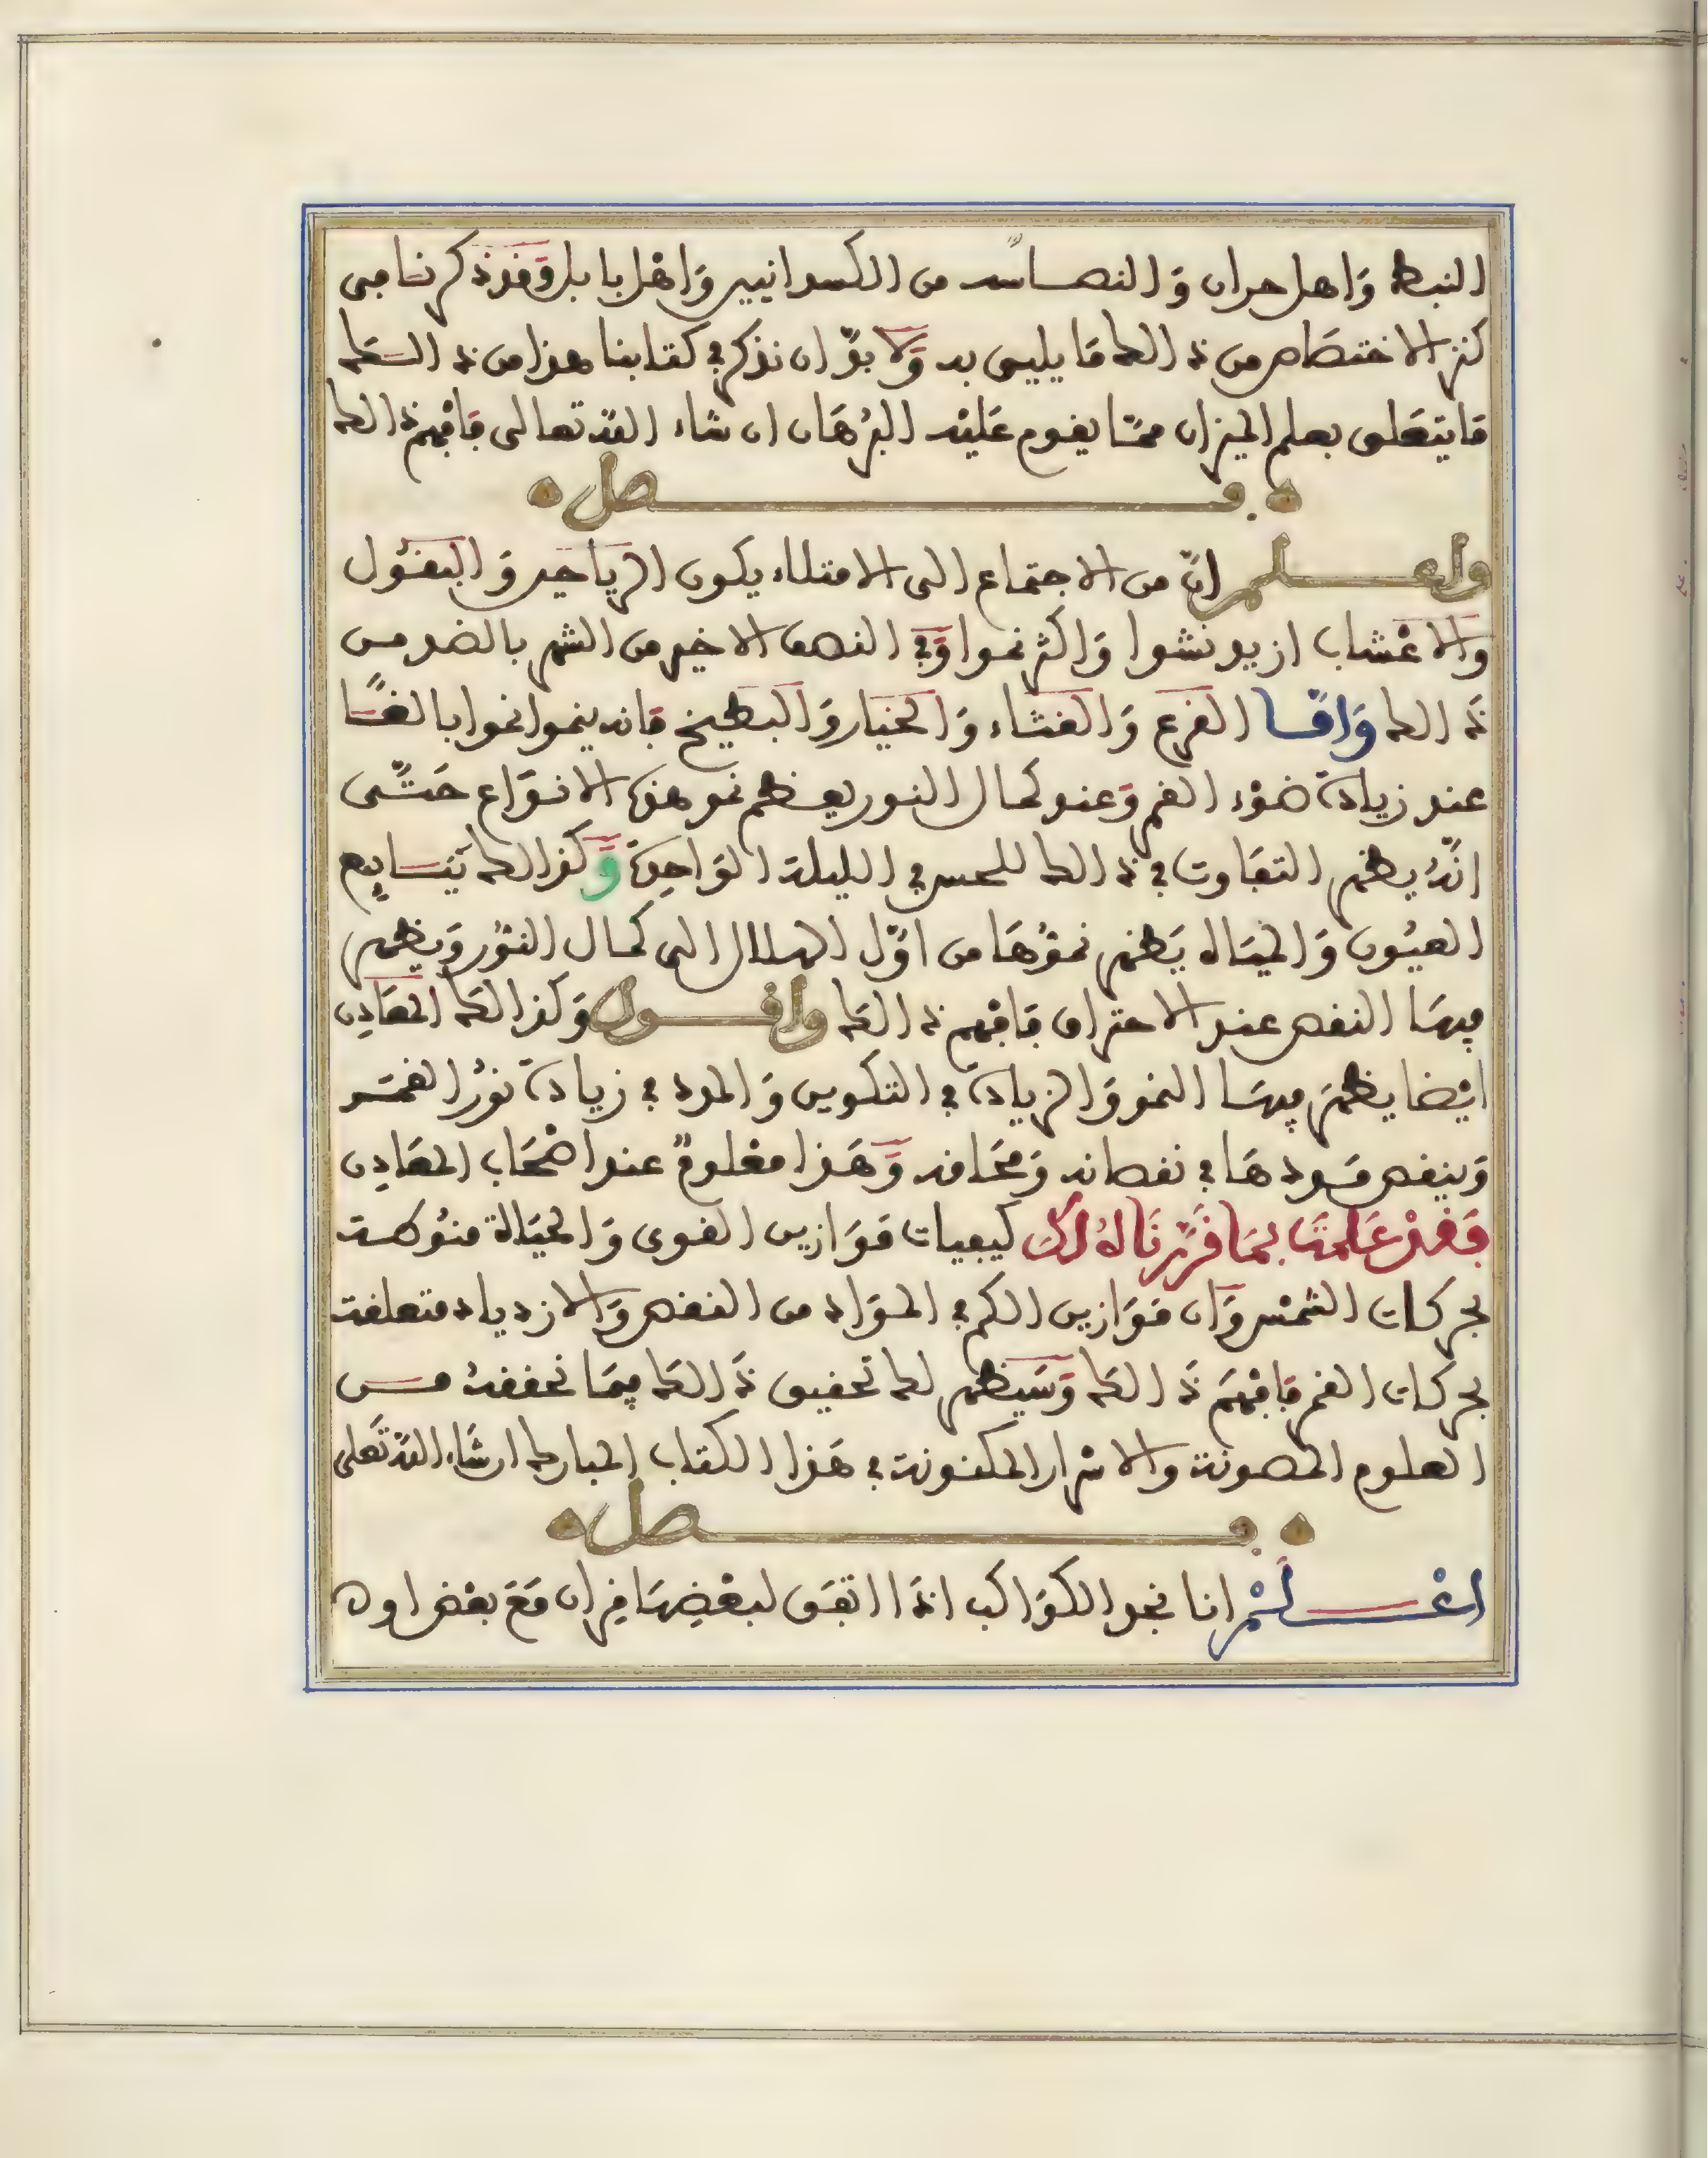 النبط وَاهل حران وَالنصاسه من الكسدانيين وَاهْل بابل وَقد ذكرنا في
كنز الاختصَاص من ذالك مَا يليق به وَلا بدّ ان نذكر في كتابنا هذا من ذالكَ
مَا يتعَلق بعلم الميزان ممّا يقوم عَليْه البُرْهَان ان شاء اللّه تعالى فَافْهم ذالك
فصل
واعلم انّ من الاجتماع الى الامتلاء يكون الرياحين وَالبقُول
وَالاعْشاب ازيد نشوا وَاكثر نموا وَفي النصف الاخير من الشهر بالضد من
ذَالك وَامّا القرع وَالقثاء وَالخيار وَالبطيخ فانه ينموا نموا بالغًا
عند زيادة ضَوْء القمر وَعند كمال النور يعظم نمو هذه الانوَاع حَتّى
انّهُ يظهر التفَاوت في ذالك للحس في الليلة الوَاحِدَة وَكذالك يَنَابِيع
العيُون وَالميَاه يَظهر نموّهَا من اوّل الهلال الى كمال النوُر وَيظهر
فيهَا النقص عند الاحتراق فَافْهم ذالكَ وَاقول وَكذالكَ المعَادِن
ايْضا يظهَر فيهَا النمو وَالزيادَة في التكوين وَالمدد في زيادَة نوُر القمَر
وَينقص مَددهَا في نقصانه وَمحَاقه وَهَذا معْلومٌ عند اصْحَاب المعَادِن
فَقدْ عَلمتَ بمَا قَرّرنَاهُ لكَ كيفيات مَوَازين القوى وَالحيَاة منُوطة
بحركات الشمْس وَان مَوَازين الكم في الموَاد من النقص وَالازدياد متعلقة
بحركات القمر فَافْهَم ذَالكَ وَسَيَظهر لك تحقيق ذَالكَ فيمَا نحققهُ من
العلوم المصونة والاسْرار المكنونة في هَذا الكتاب المبارك ان شَاء اللّه تَعلى
فصل
اعْلَمْ انا نجد الكوَاكب اذَا اتفَق لبعْضِهَا قِران مَعَ بعْض اوه